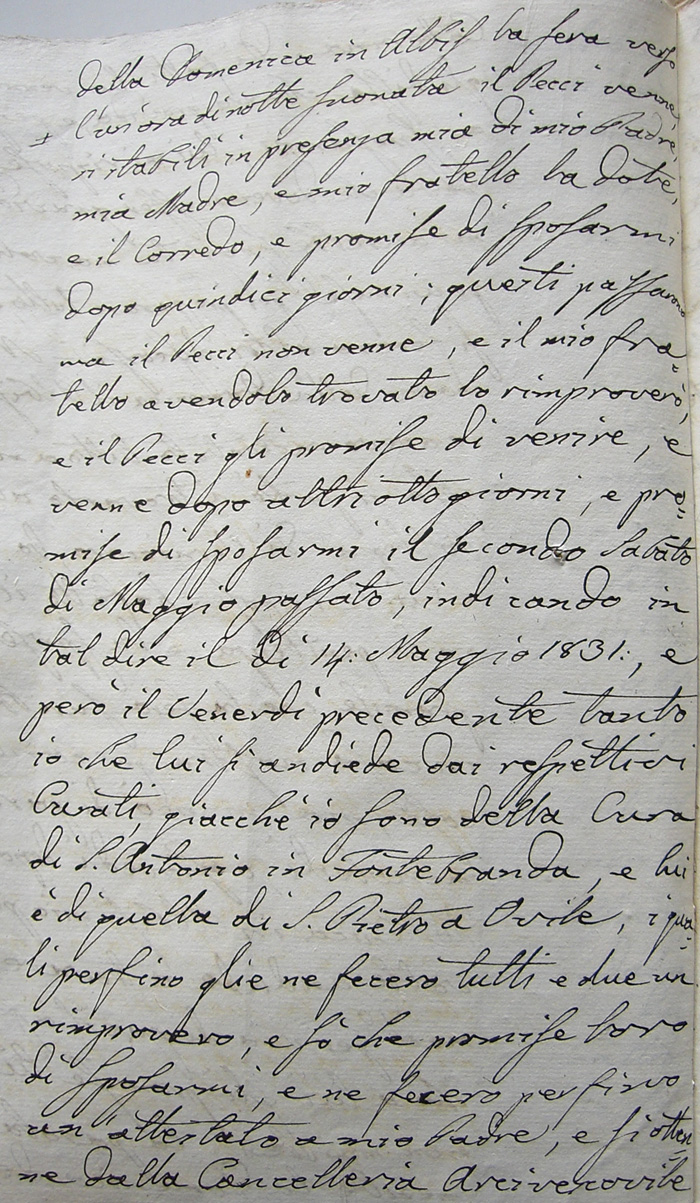 della Domenica in Albis la sera verso
l'un'ora di notte suonata il Pecci venne,
ristabilì in presenza mia di mio Padre,
mia Madre, e mio fratello la dote,
e il Corredo, e promise di sposarmi
dopo quindici giorni; questi passarono
ma il Pecci non venne, e il mio fra=
tello avendolo trovato lo rimproverò,
e il Pecci gli promise di venire, e
venne dopo altri otto giorni, e pro=
mise di sposarmi il secondo Sabato
di Maggio passato, indicando in
tal dire il dì 14: Maggio 1831:, e
però il Venerdì precedente tanto
io che lui si andiede dai respettivi
Curati, giacchè io sono della Cura
di S. Antonio in Fontebranda, e lui
è di quella di S. Pietro a Ovile, i qua=
li perfino glie ne fecero tutti e due un
rimprovero, e sò che promise loro
di sposarmi, e ne fecero perfino
un attestato a mio Padre, e si otten=
ne dalla Cancelleria Arcivescovile